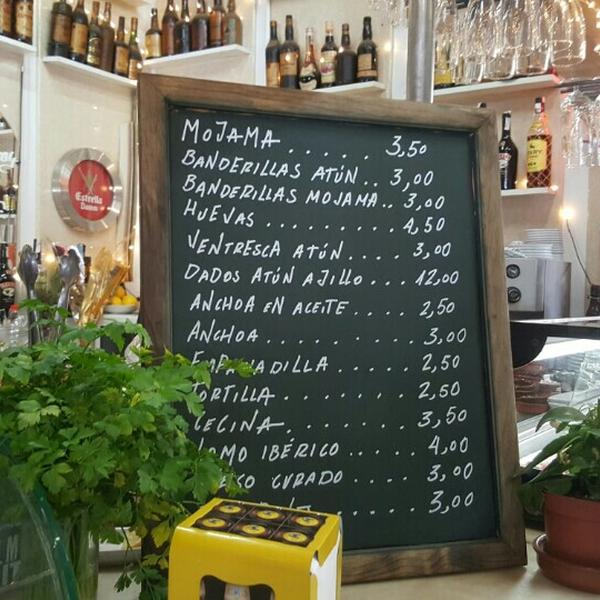 MOJAMA...... 3,50
BANDERILLAS ATÚN.. 3,00
BANDERILLAS MOJAMA.. 3,00
HUEVAS......... 4,50
VENTRESCA ATÚN.... 3,00
DADOS ATÚN AJILLO... 12,00
ANCHOA EN ACEITE.... 2,50
ANCHOA.......... 3,00
EMPANADILLA..... 2,50
TORTILLA....... 2,50
CECINA........ 3,50
LOMO IBÉRICO..... 4,00
QUESO CURADO.... 3,00
3,00
Estrella
Damm